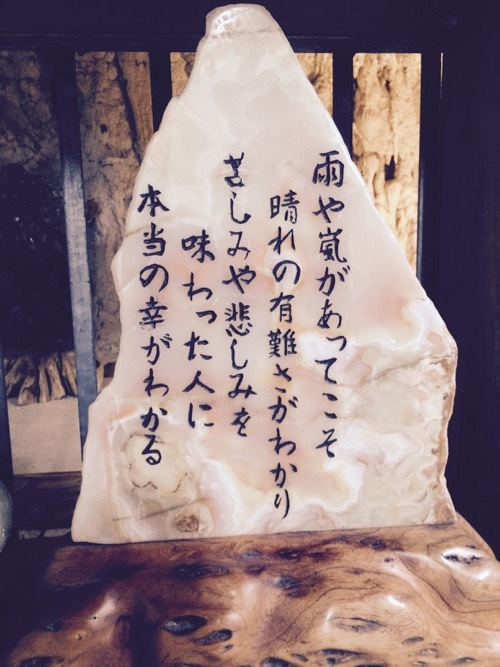 雨や嵐があってこそ
晴れの有難さがわかり
苦しみや悲しみを
味わった人に
本当の幸がわかる